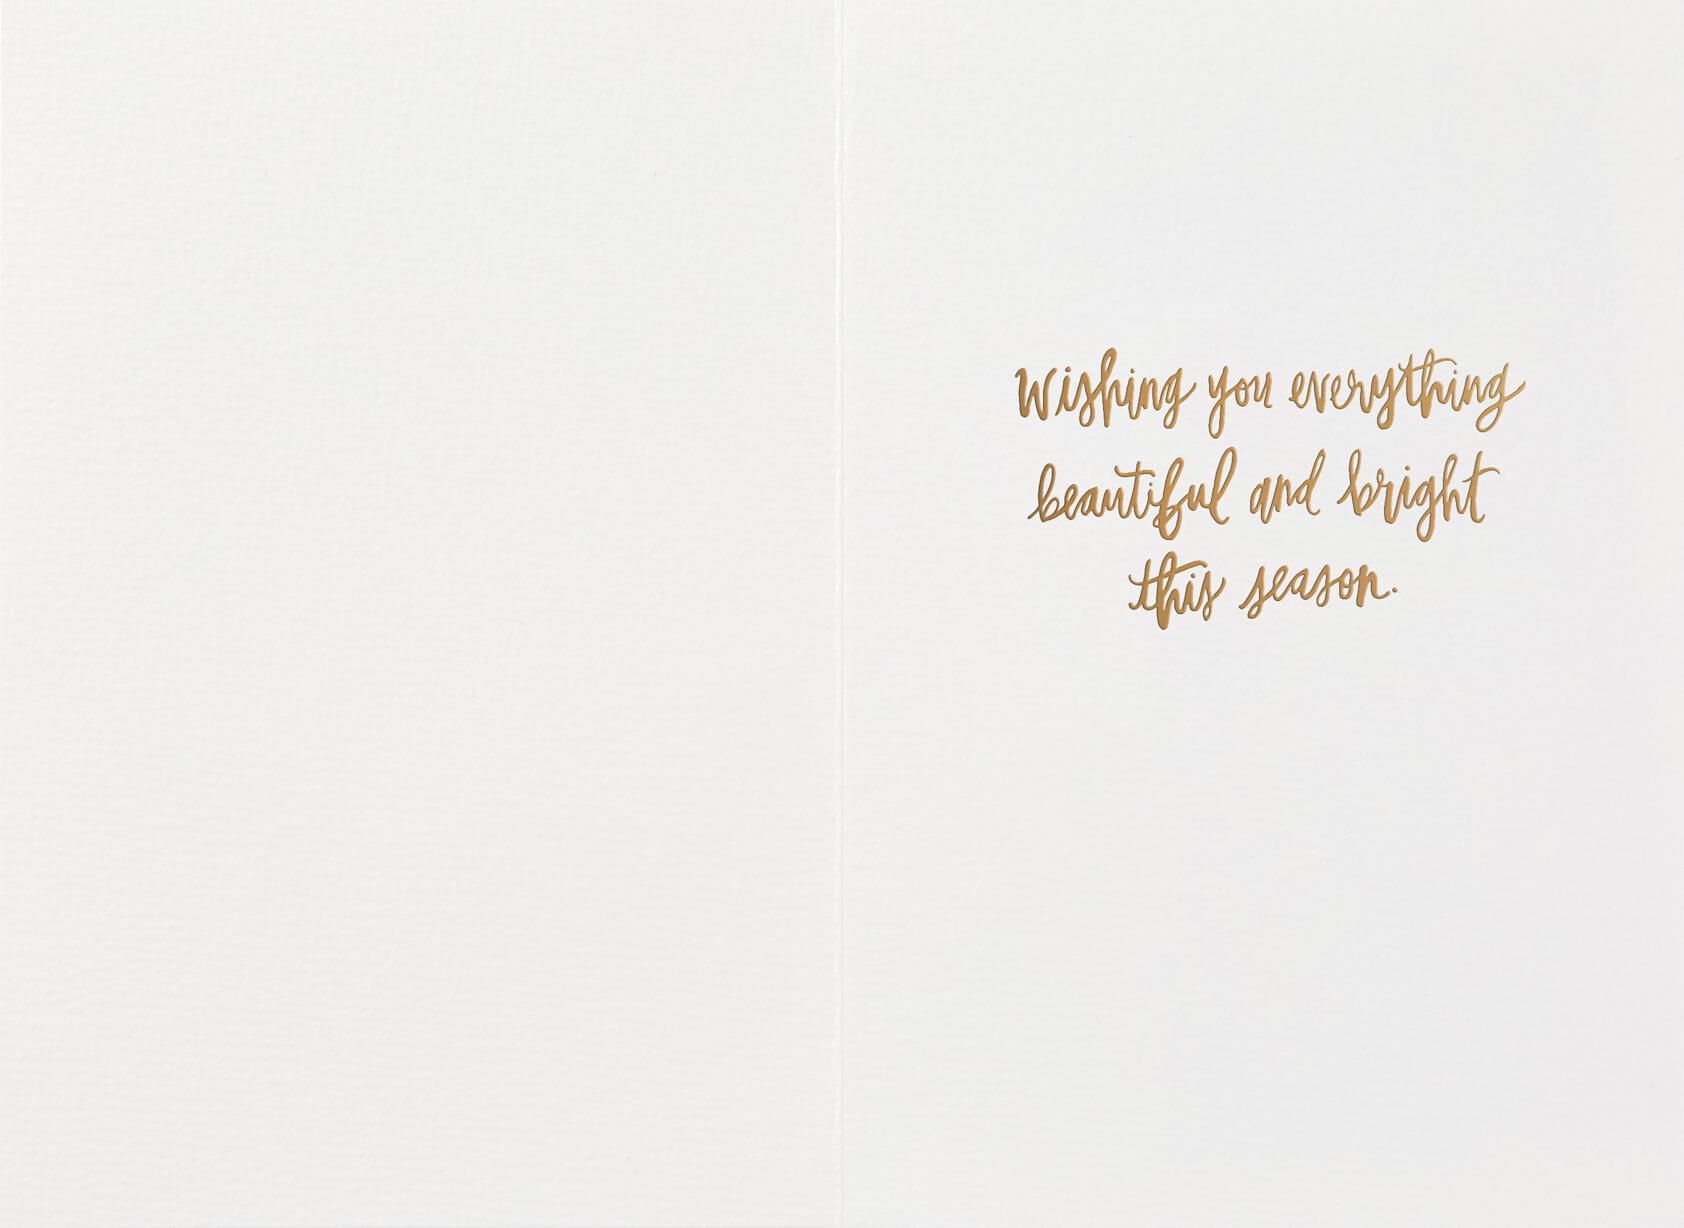 Wishing you everything
beautiful and bright
this season.